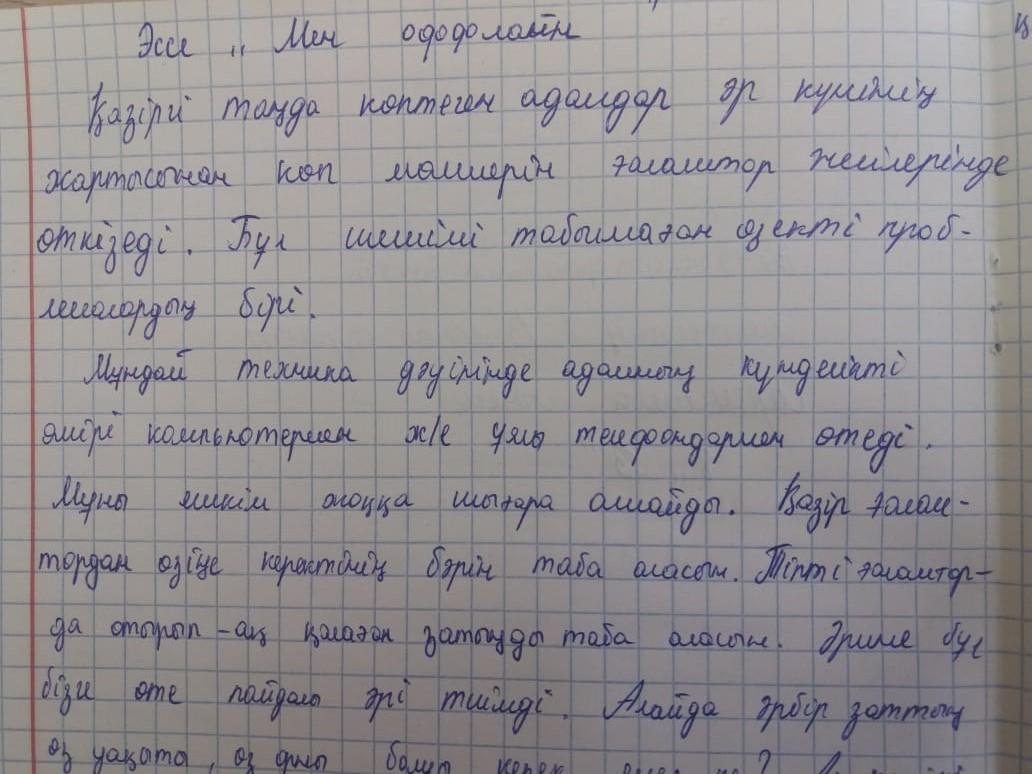 Эссе „ Мен
Қазіргі таңда көптеген адамдар әр күнінің
жартысынан көп мөлшерін ғаламтор желілерінде
өткізеді. Бұл шешімі табылмаған өзекті проб-
лемалардың бірі.
Мұндай техника дәуірінде адамның күнделікті
өмірі компьютермен ж/е ұялы телефондармен өтеді.
Мұны ешкім жоққа шығара алмайды. Қазір ғалам-
тордан өзіңе керектінің бәрін таба аласың. Тіпті ғаламтор-
да отырып-ақ қалаған затыңды таба аласың. Әрине бұл
бізге өте пайдалы әрі тиімді. Алайда әрбір заттың
өз уақыты, өз орны болуы керек емес пе?